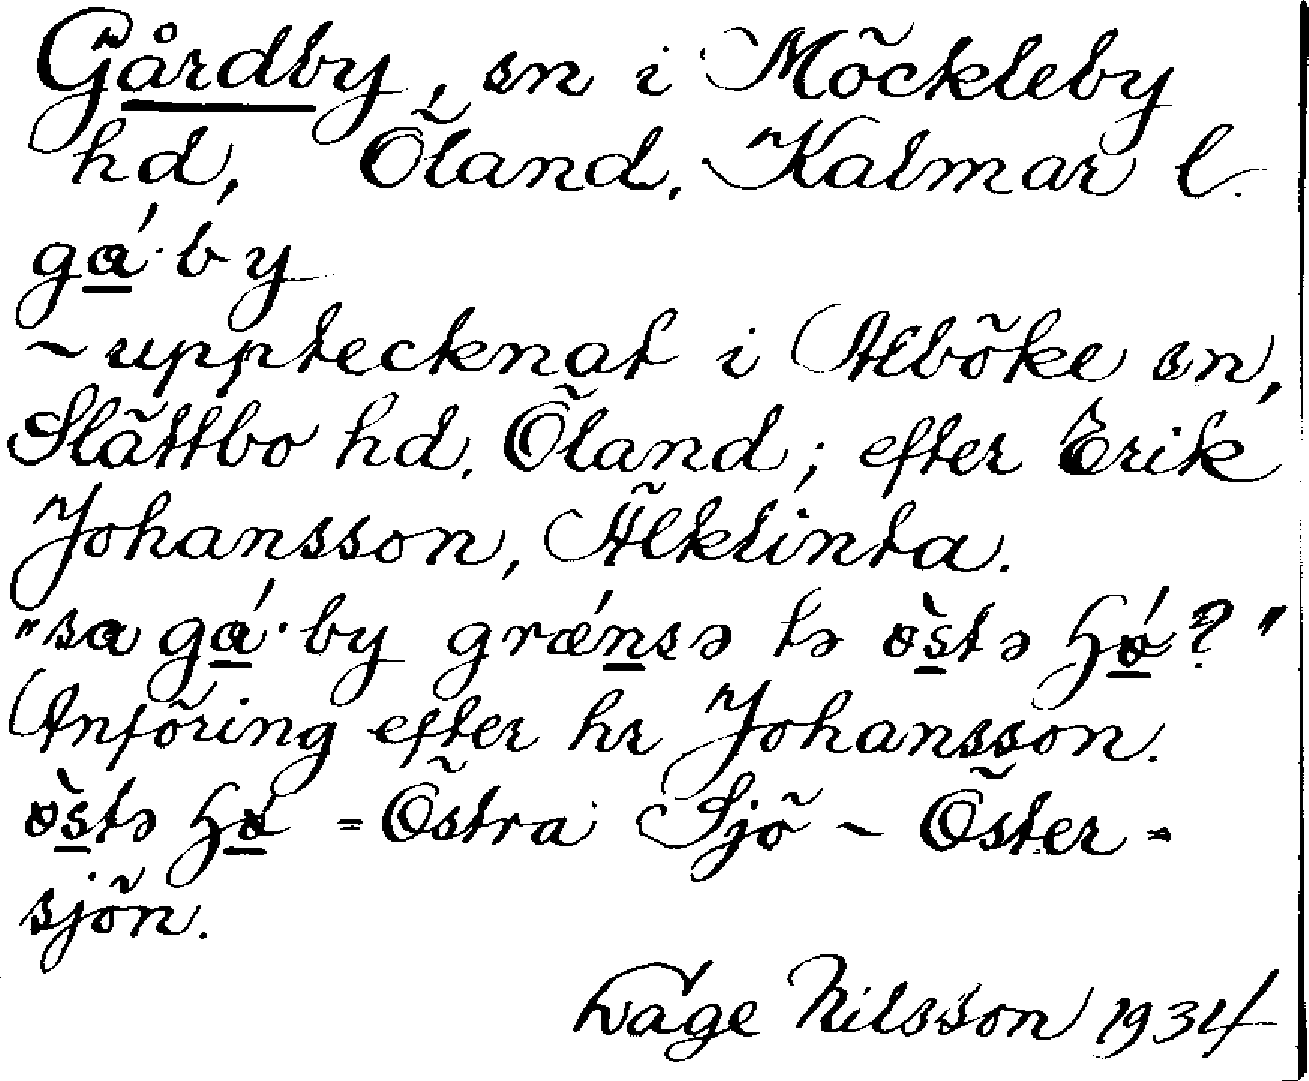 Gårdby, sn i Möckleby
hd, Öland, Kalmar l.
gá·by
~ upptecknat i Alböke sn,
Slättbo hd, Öland; efter Erik
Johansson, Älklinta.
"sa gá·by grǽnsə tə òstə ꜧǿ?"
Anföring efter hr Johansson.
òstə ꜧǿ = Östra Sjö ~ Öster-
sjön.
Tage Nilsson 1934